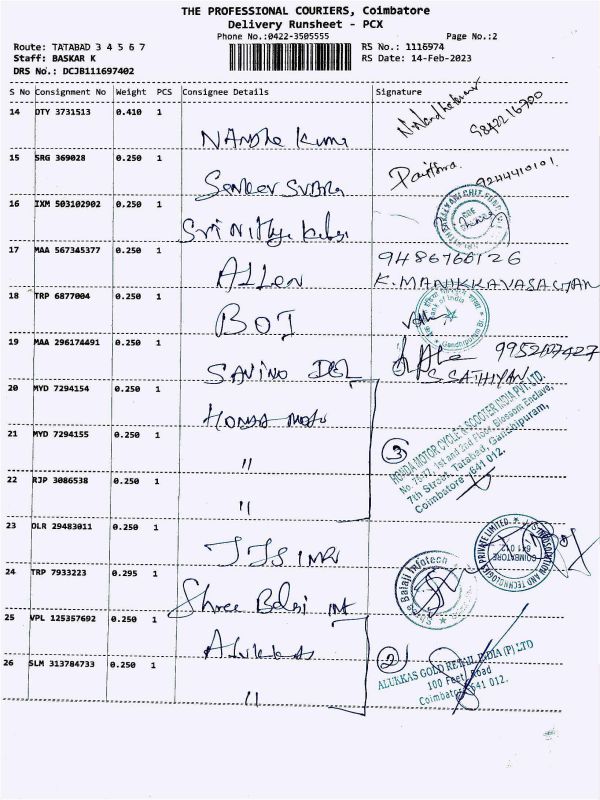 THE PROFESSIONAL COURIERS, Coimbatore
Delivery Runsheet - PCX
Phone No.:0422-3505555 Page No.:2
Route: TATABAD 3 4 5 6 7 RS No.: 1116974
Staff: BASKAR K RS Date: 14-Feb-2023
DRS No.: DCJB111697402
S No Consignment No Weight PCS Consignee Details Signature
14 DTY 3731513 0.410 1
Nandha Kumar 9842216700
15 SRG 369028 0.250 1
Pavithra 9244410101.
16 IXM 503102902 0.250 1
Sri Nithya
17 MAA 567345377 0.250 1 9486766126
ALLEN K. MANIKKAVASAGAN
18 TRP 6877004 0.250 1
BOI Bank of India Gandhipuram Br.
19 MAA 296174491 0.250 1
SAVINO DEL S. SATHIYAN
20 MYD 7294154 0.250 1
Honda Moto
21 MYD 7294155 0.250 1 3 HONDA MOTOR CYCLE & SCOOTER INDIA PVT. LTD.
" No. 76/77, 1st and 2nd Floor, Blossom Enclave,
7th Street, Tatabad, Gandhipuram,
Coimbatore - 641 012.
22 RJP 3086538 0.250 1
"
23 DLR 29483011 0.250 1
COIMBATORE 641 012
24 TRP 7933223 0.295 1 Shree Balaji Infotech
Shree Balaji Inf
25 VPL 125357692 0.250 1
Alukkas
26 SLM 313784733 0.250 1 2 ALUKKAS GOLD RETAIL INDIA (P) LTD
" 100 Feet Road
Coimbatore - 641 012.